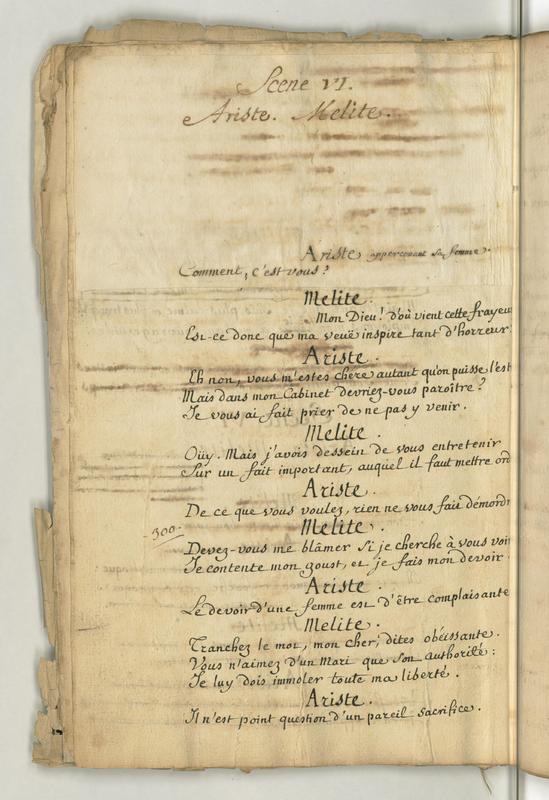 Scene VI.
Ariste. Melite.
Ariste appercevant sa femme.
Comment, c'est vous?
Melite.
Mon Dieu! d'où vient cette frayeu
Est-ce donc que ma veuë inspire tant d'horreur
Ariste.
Eh non, vous m'estes chére autant qu'on puisse l'est
Mais dans mon Cabinet devriez-vous paroître?
Je vous ai fait prier de ne pas y venir.
Melite.
Oüy. Mais j'avois dessein de vous entretenir
Sur un fait important, auquel il faut mettre ord
Ariste.
De ce que vous voulez, rien ne vous fait démordr
Melite.
300.
Devez-vous me blâmer si je cherche à vous voir
Je contente mon goust, et je fais mon devoir.
Ariste.
Le devoir d'une femme est d'être complaisante
Melite.
Tranchez le mot, mon cher, dites obéissante.
Vous n'aimez d'un Mari que son authorité:
Je luy dois immoler toute ma liberté.
Ariste.
Il n'est point question d'un pareil sacrifice.